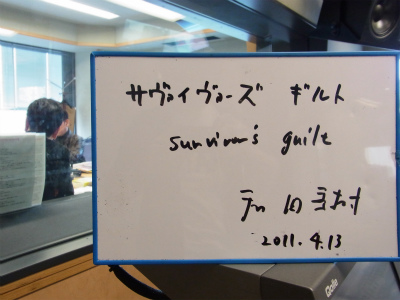 サヴァイヴァーズ ギルト
survivor's guilt
2011. 4.13